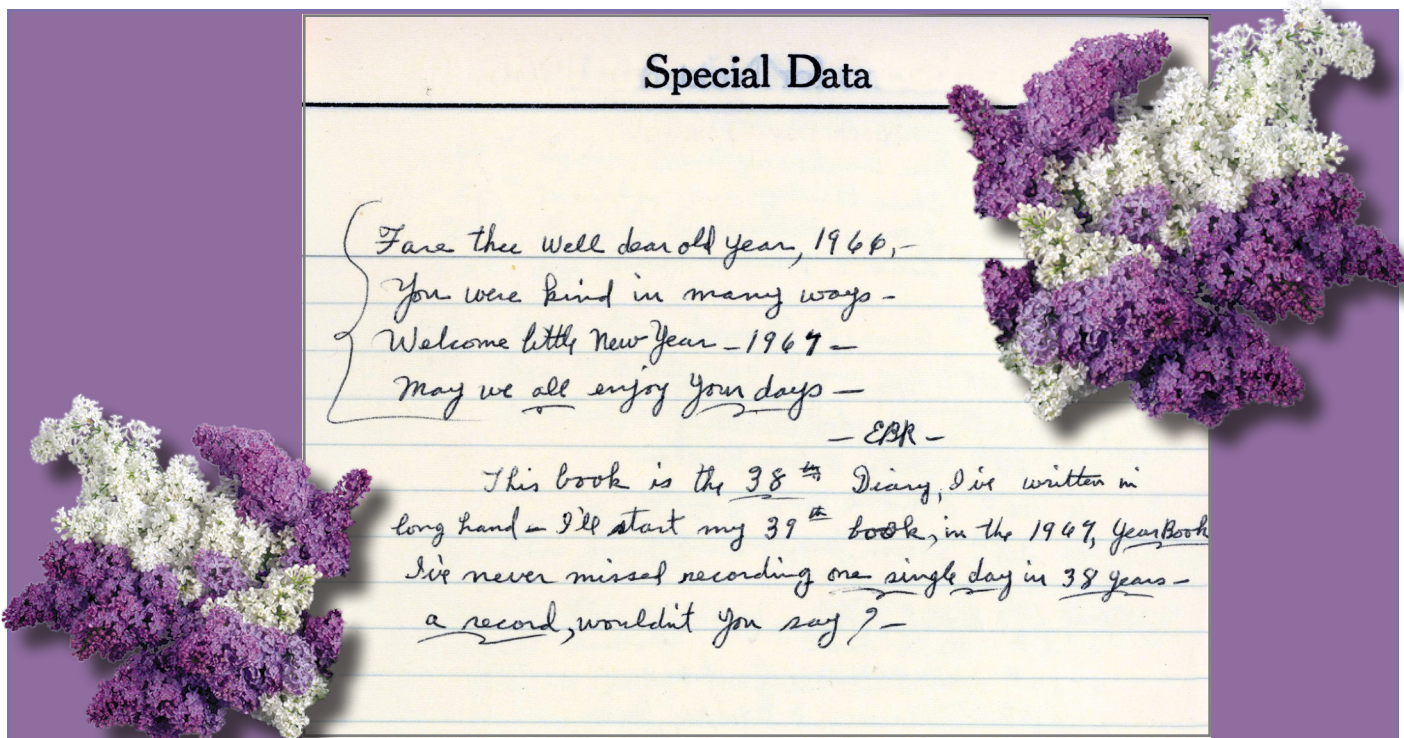 Special Data
Fare thee well dear old year, 1966,–
You were kind in many ways –
Welcome little New Year – 1967 –
May we all enjoy your days –
– EBR –
This book is the 38th Diary, I've written in
long hand – I'll start my 39th book, in the 1967, Year Book
I've never missed recording one single day in 38 years –
a record, wouldn't you say? –